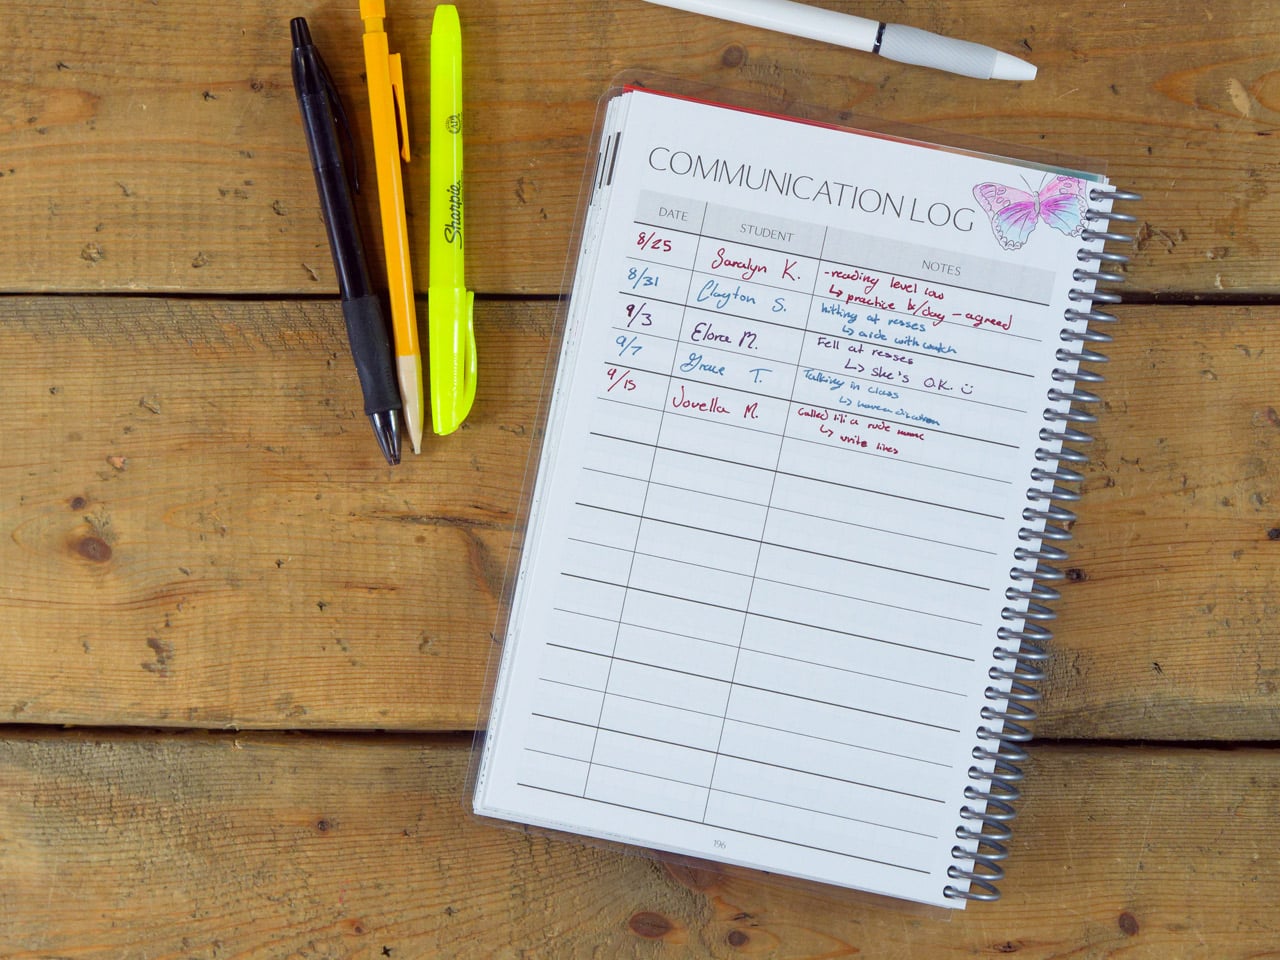 Sharpie
COMMUNICATION LOG
DATE STUDENT NOTES
8/25 Saralyn K. -reading level low
↳ practice 1x/day - agreed
8/31 Clayton S. hitting at resses
↳ aide with watch
9/3 Elora M. Fell at resses
↳ she's O.K. ☺
9/7 Grace T. Talking in class
↳
9/15 Jovella M. Called lili a rude name
↳ write lines
196